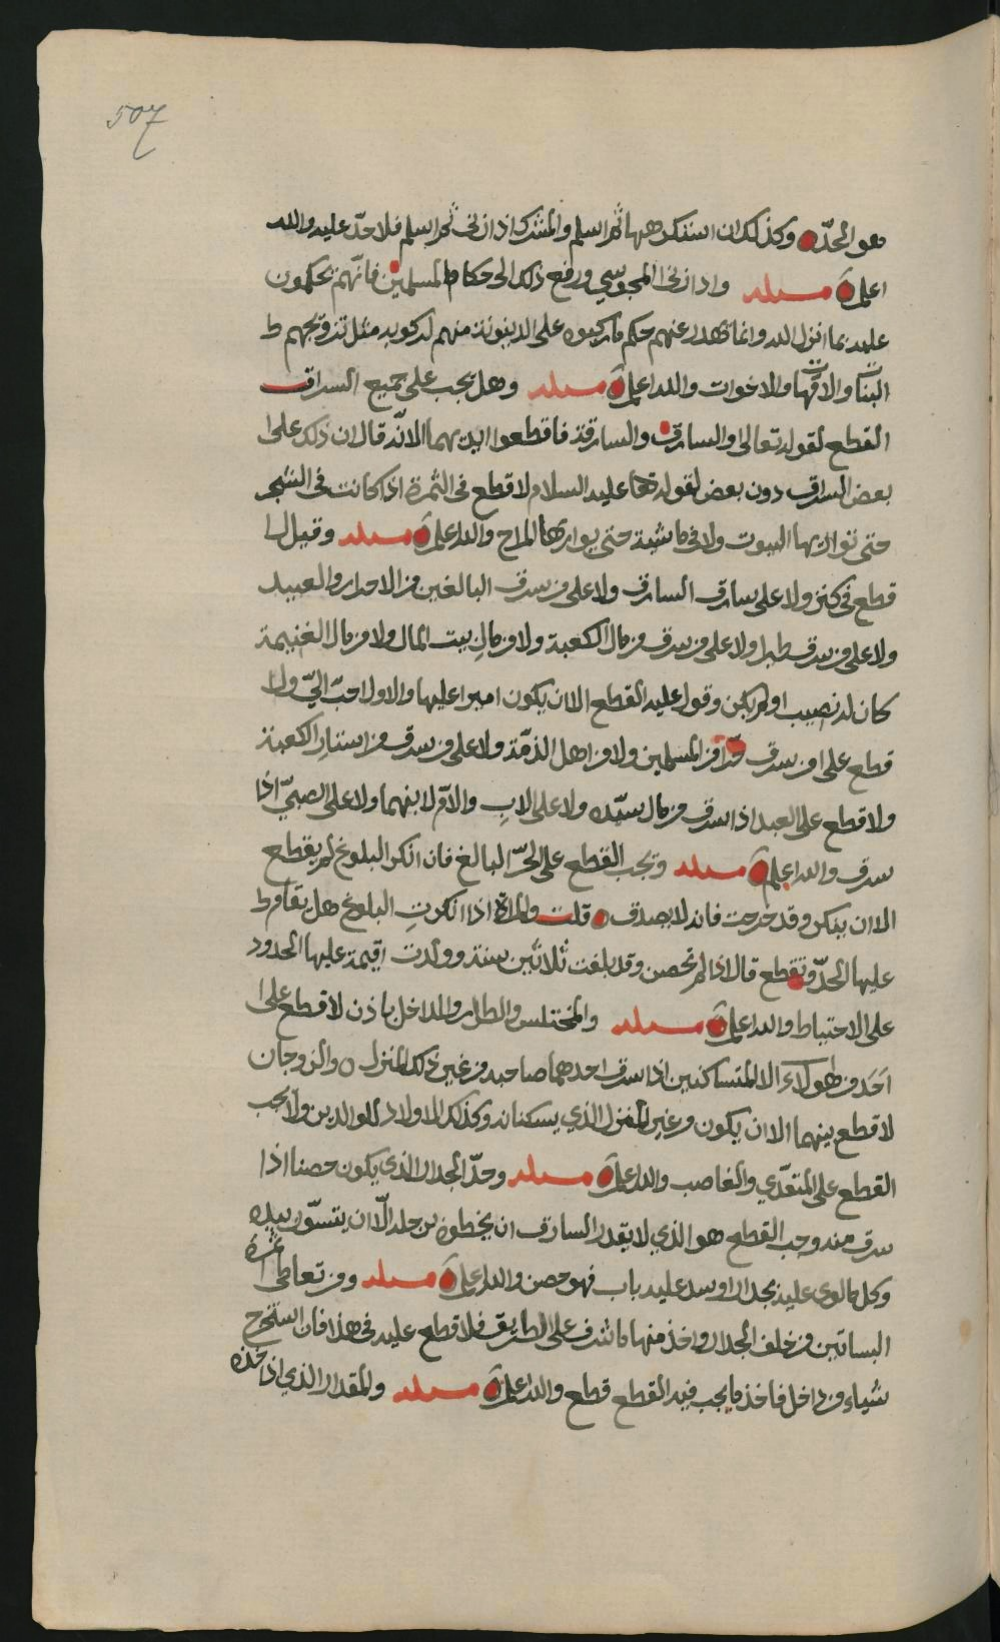 507
هو الحدّ وكذلك ان استكرهها ثم اسلم والمشرك اذا زنى ثم اسلم فلا حدّ عليه والله
اعلم مسئلة واذا زنى المجوسي ورفع ذلك الى حكام المسلمين فانّهم يحكمون
عليه بما انزل الله وانما يهدر عنهم حكم ما ركبوه على الدينونة منهم لركوبه مثل تزويجهم
البنات والامّهات والاخوات والله اعلم مسئلة وهل يجب على جميع السراق
القطع لقوله تعالى والسارق والسارقة فاقطعوا ايديهما الا انّه قال ان ذلك على
بعض السراق دون بعض لقوله عليه السلام لا قطع في الثمرة اذا كانت في الشجر
حتى تواريها البيوت ولا في ماشية حتى يواريها المراح والله اعلم مسئلة وقيل لا
قطع في كنز ولا على سارق السارق ولا على من سرق البالغين من الاحرار والعبيد
ولا على من سرق طيرا ولا على من سرق من مال الكعبة ولا من مال بيت المال ولا من مال الغنيمة
كان له نصيب او لم يكن وقول عليه القطع الا ان يكون اميرا عليها والاول احبّ اليّ ولا
قطع على من سرق حرّا من المسلمين ولا من اهل الذمّة ولا على من سرق من استار الكعبة
ولا قطع على العبد اذا سرق من مال سيّده ولا على الاب والامّ لابنهما ولا على الصبيّ اذا
سرق والله اعلم مسئلة ويجب القطع على الحرّ البالغ فان انكر البلوغ لم يقطع
الا ان ينكر وقد خرجت فانه لا يصدق قلت والمراة اذا انكرت البلوغ هل يقام
عليها الحدّ وتقطع قال اذا لم تحصن وقد بلغت ثلاثين سنة وولدت اقيمة عليها الحدود
على الاحتياط والله اعلم مسئلة والمختلس والطرار والداخل باذن لا قطع على
احَد من هولاء الا المتساكنين اذا سرق احدهما صاحبه من غير ذلك المنزل والزوجان
لا قطع بينهما الا ان يكون من غير المنزل الذي يسكنانه وكذلك الاولاد للوالدين ولا يجب
القطع على المتعدّي والغاصب والله اعلم مسئلة وحدّ الجدار الذي يكون حصنا اذا
سرق منه وجب القطع هو الذي لا يقدر السارق ان يخطوه برجله الّا ان يتسوّر بيده
وكل مالوى عليه بجدار او سد عليه باب فهو حصن والله اعلم مسئلة ومن تعاطى ثمرة
البساتين من خلف الجدار واخذ منها ما شرف على الطريق فلا قطع عليه في هذا فان استخرج
شياء من داخل فاخذ ما يجب فيه القطع قطع والله اعلم مسئلة والمقدار الذي اذا اخذه